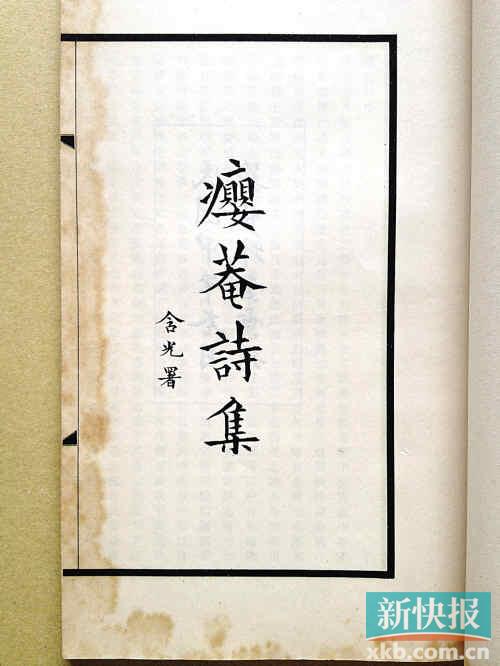 癭菴詩集
含光署
新快报
xkb.com.cn